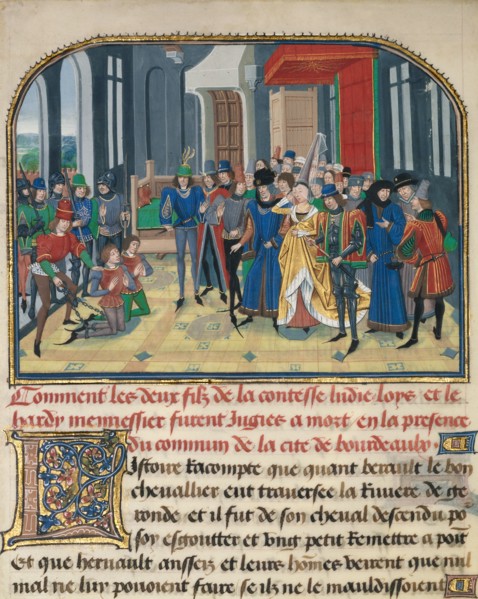 Comment les deux filz de la contesse ludie loys et le
hardy mennessier furent Jugies a mort en la presence
du commun de la cite de bourdeaulx
Istoire Racompte que quant berault le bon
chevallier eut traversee la Riviere de ge
ronde et il fut de son cheval descendu po
soy esgoutter et ung petit Remettre a poit
Et que heruault ansseiz et leurs hommes veirent que nul
mal ne luy pouoient faire se ilz ne le mauldissoient